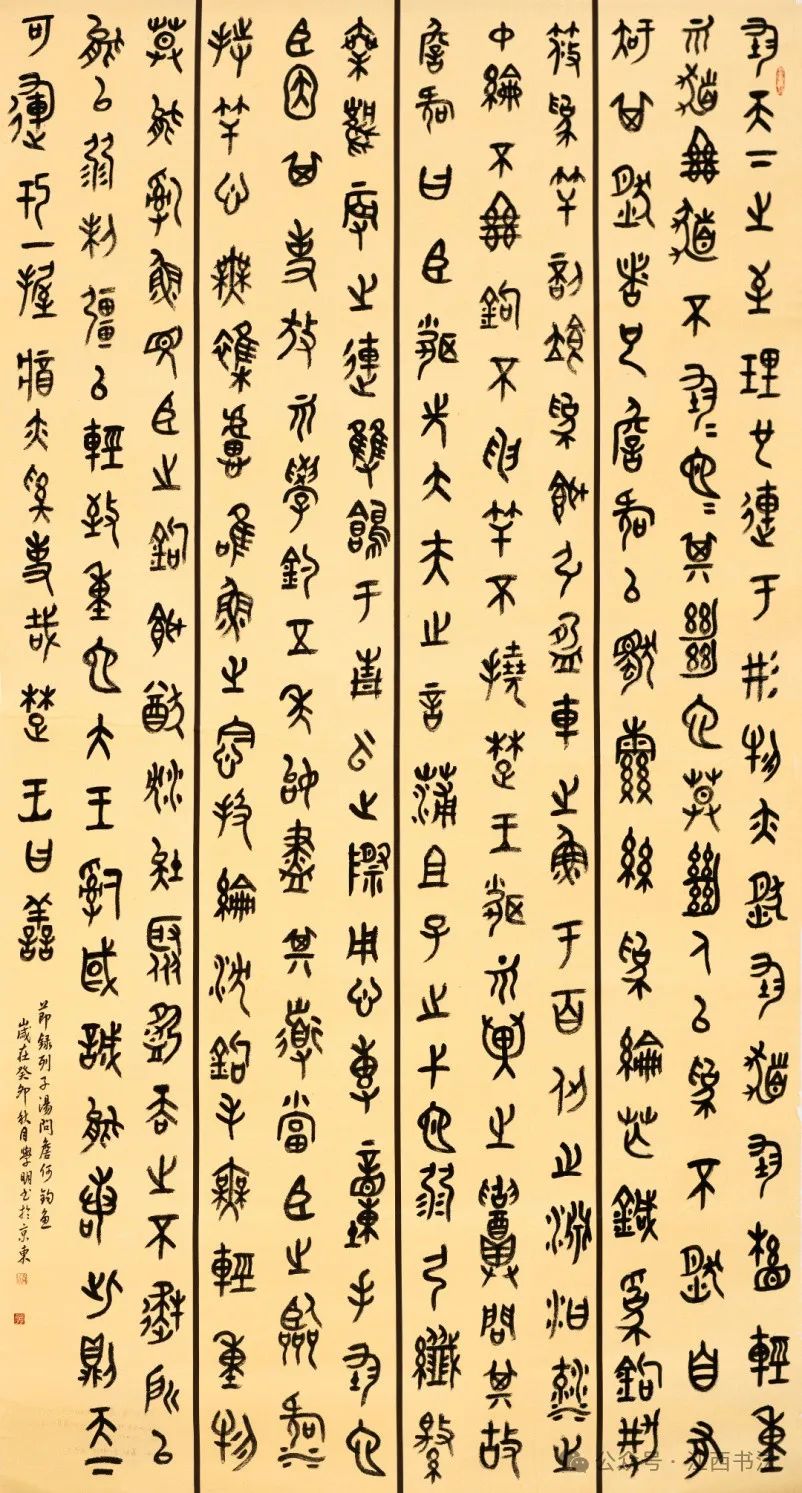 均天下之至理也連于形物亦然均髮均縣輕重
而髮絕髮不均也均也其絕也莫絕人以為不然自有
知其然者也詹何以獨繭絲為綸芒鍼為鉤荊
篠為竿剖粒為餌引盈車之魚于百仞之淵汩流之
中綸不絕鉤不伸竿不撓楚王聞而異之召問其故
詹何曰臣聞先大夫之言蒲且子之弋也弱弓纖繳
乘風振之連雙鶬于青雲之際用心專動手均也
臣因其事放而學釣五年始盡其道當臣之臨河
持竿心無雜慮唯魚之念投綸沈鉤手無輕重物
莫能亂魚見臣之鉤餌猶沈埃聚沫吞之不疑所以
能以弱制彊以輕致重也大王治國誠能若此則天下
可運于一握將亦奚事哉楚王曰善
節錄列子湯問詹何釣魚
歲在癸卯秋月學明書於京東
公众号·江西书法